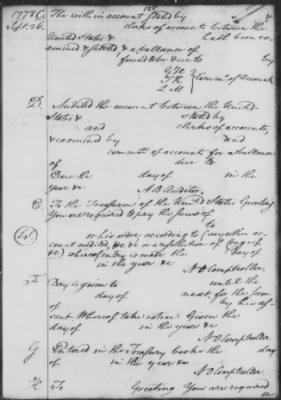 1778 C. The within account stated by
Sept. 26. clerks of accounts between the
United States & hath been ex-
amined & stated & a ballance of
found to be due to by
G H
I K } Commrs. of Accounts
L M
D. Audited the account between the United
States & stated by
and clerks of accounts,
& examined by and
commrs. of accounts for a ballance
of due to
Done the day of in the
year &c A B Auditor.
E. To the Treasurer of the United States Greeting
You are required to pay the sum of
to
or his order, according to (any other ac-
count audited, &c &c or a resolution of Congress
&c) whereof entry is made the Day of
in the year &c
N O Comptroller.
F. Day is given to until the
day of next, for the sum
of by him af-
sent. Whereof take notice. Given the
day of in the year &c
N O Comptroller
G Entered in the Treasury books the day
of in the year &c
N O Comptroller.
H. To Greeting. You are required